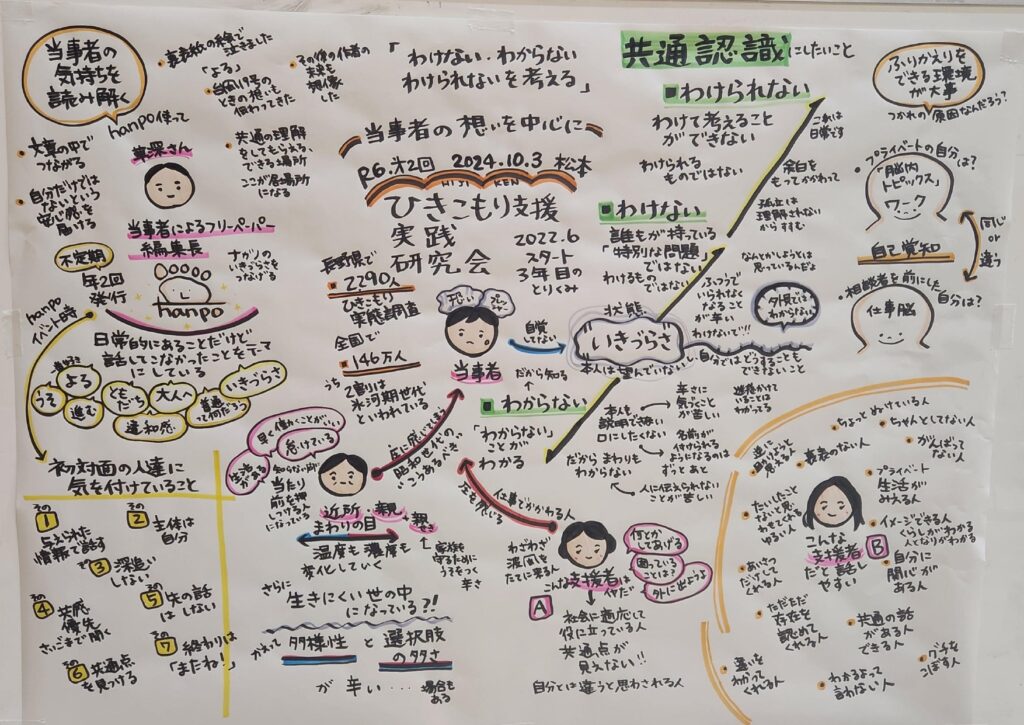 当事者の
気持ちを
読み解く
hanpo使って
・裏表紙の絵で
泣きました
「よる」
・台風19号の
ときの想いも
伝わってきた
・その後の作者の
未来を
想像
した
・大草の中で
つながる
・自分だけでは
ないという
安心感を
届ける
草深さん
・共通の理解
をしてもらえる、
できる場所
ここが居場所
になる
当事者によるフリーペーパー
編集長
不定期
年2回
発行
hanpo
ナガノの
いきづらさを
つなげる
hanpo
イベント時
日常的にあることだけど
話してこなかったことをテーマ
にしている
うそ
よる
進む
ともだち
違和感
大人へ
普通って何だろう
いきづらさ
初対面の人達に
気を付けていること
その
1
与えられた
情報で話す
その
2
主体は
自分
その
3
深追い
しない
その
4
共感
優先
さいごまで聞く
その
5
先の話
はしない
その
6
共通点
を見つける
その
7
終わりは
「またね!」
「わけない・わからない
わけられないを考える」
当事者の想いを中心に
R6.第2回 2024.10.3 松本
HIJI KEN
ひきこもり支援
実践
研究会
2022.6
スタート
3年目の
とりくみ
長野県で
2290人
ひきこもり
実態調査
全国で
146万人
うち
2割は
氷河期世代
といわれている
当事者
自覚
してない
だから知る
早く働くことがいい
怠けている
知らない所で
当たり
前を押
しつける人
になっている
近所・親・親せき
まわりの目
温度も濃度も
変化していく
家族を
守るために
うそをつく
辛さ
昭和世代の
こうあるべき
さらに
生きにくい世の中
になっている?!
かえって
多様性と選択肢
の多さ
が辛い・・・
場合も
ある
共通認識にしたいこと
■わけられない
わけて考えること
ができない
わけられる
ものではない
これは
日常です
余白を
もってかかわって
孤立は
理解されない
からすすむ
■わけない
誰もが持っている
「特別な問題」
ではない
わけるものではない
なんとかしようとは
思っているんだよ
ふつうで
いられなく
なること
が辛い
わけないで!!
外見では
わからない
状態
いきづらさ
本人は望んでいない、自分ではどうすることも
できないこと
■わからない
「わからない」
ことが
わかる
本人も
説明できない
口にしたくない
だからまわりも
わからない
辛さに
気づくこと
が苦しい
名前が
付けられる
ようになるのは
ずっとあと
人に伝えられない
ことが苦しい
迷惑かけて
いることは
わかってる
仕事でかかわる人
わざわざ
波風を
たてに来る人
こんな支援者はヤだな
A
何とか
してあげる
困っている
ことは?
外に出ようよ
社会に適応して
役に立っている人
共通点が
見えない!!
自分とは違うと思わされる人
ふりかえりを
できる環境
が大事
つかれの原因なんだろう?
・プライベートの自分
は?
「脳内
トピックス」
ワーク
同じ
or
違う
自己覚知
・相談者を前にした
自分は?
仕事脳
・ちょっとぬけている人
・ちゃんとしてない人
・がんばって
ない人
・表裏のない人
・プライベート
生活が
みえる人
・イメージできる人
くらしがわかる
人となりがわかる
・自分に
関心が
ある人
・たいしたこと
ないと思い
させてくれる
ゆるい人
・あいさつ
だけして
くれる人
こんな
支援者
だと話し
やすい
B
・ただただ
存在を
認めて
くれる人
・共通の話
ができる人
・違いを
わかって
くれる人
・わかるよって
言わない人
・グチを
こぼす人